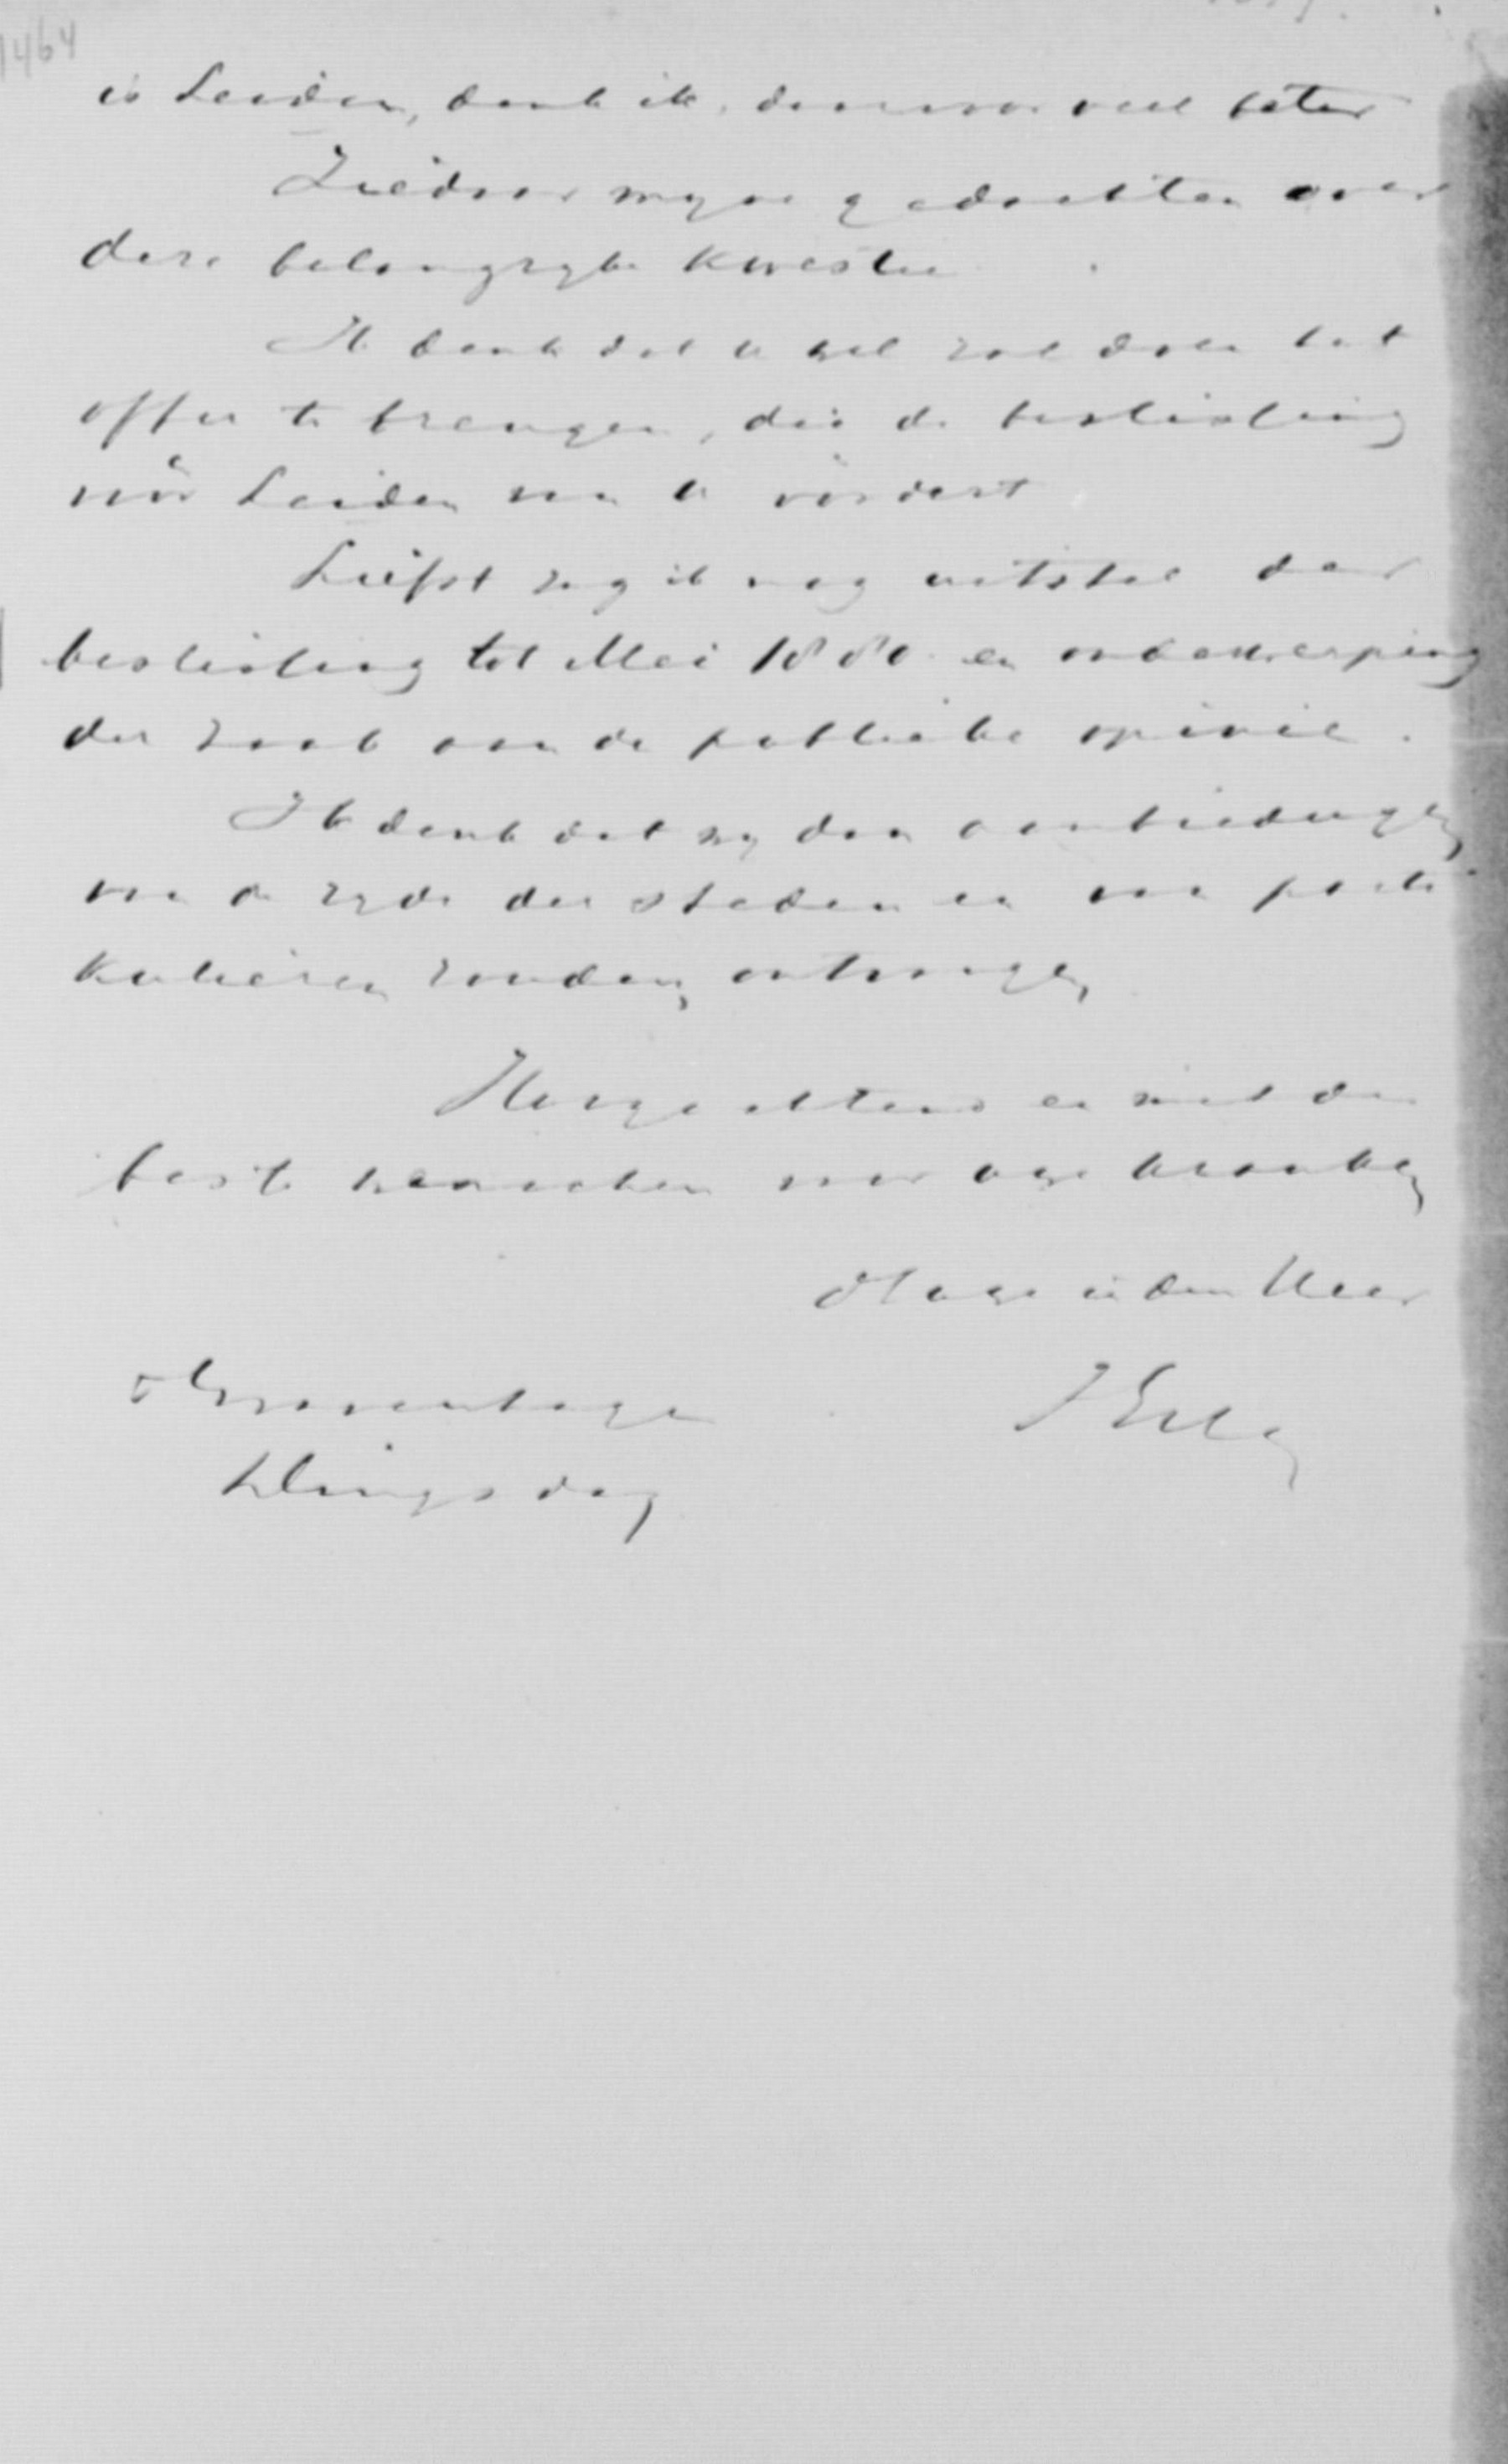 1464
is Leiden, denk ik, daarvoor veel beter
Ziedaar myne gedachten over
deze belangryke kwestie
Ik denk dat U wel zal doen het
offer te brengen, die de beslissing
voor Leiden van U vordert
Liefst zag ik nog uitstel der
beslissing tot Mei 1880 en onderwerping
der zaak aan de publieke opinie.
Ik denk dat wy dan aanbiedingen
van de zyde der steden en van parti
kulieren zouden ontvangen
Hoogachtend en met de
beste wenschen voor uwe kranken
Hage in den Heer
's Gravenhage
Dingsdag